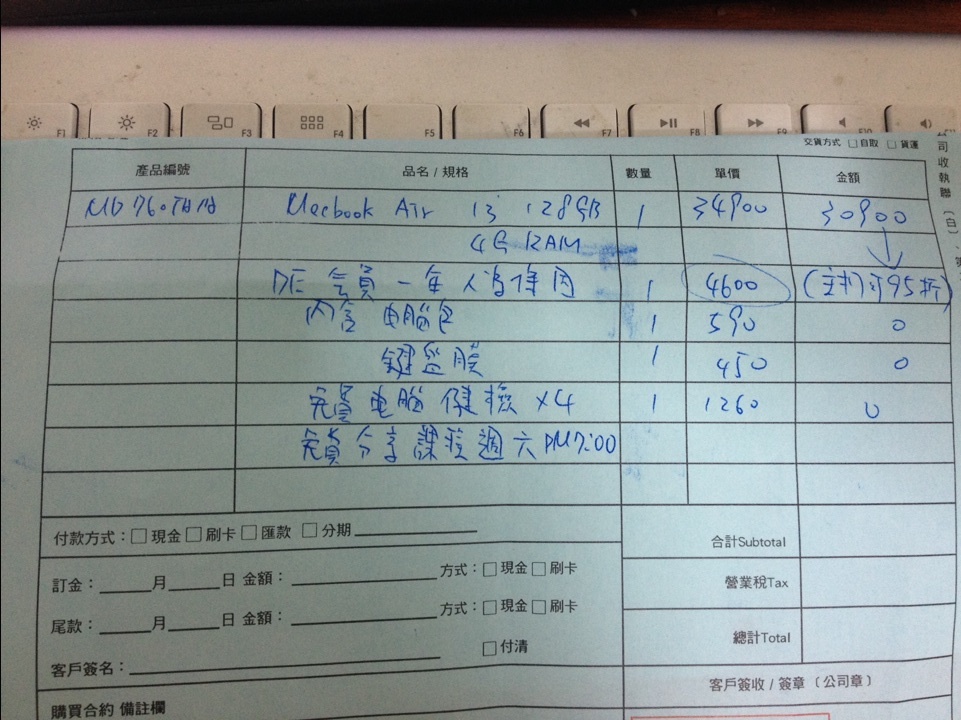 F1 F2 F3 F4 F5 F6 F7 F8 F9 F10
交貨方式 □自取 □貨運
司收執聯(白)
產品編號 品名 / 規格 數量 單價 金額
MD760TA/A Macbook Air 13" 128GB 1 34900 30900
4G RAM
DE 会員一年 1 4600 (主打)可95折
內含 电腦包 1 590 0
鍵盤膜 1 450 0
免費电腦健檢 x4 1 1260 0
免費分享課程週六PM7:00
付款方式:□現金□刷卡□匯款 □分期
合計Subtotal
訂金:____月____日 金額:________方式:□現金□刷卡
營業稅Tax
尾款:____月____日 金額:________方式:□現金□刷卡
總計Total
□付清
客戶簽名:
客戶簽收 / 簽章(公司章)
購買合約 備註欄